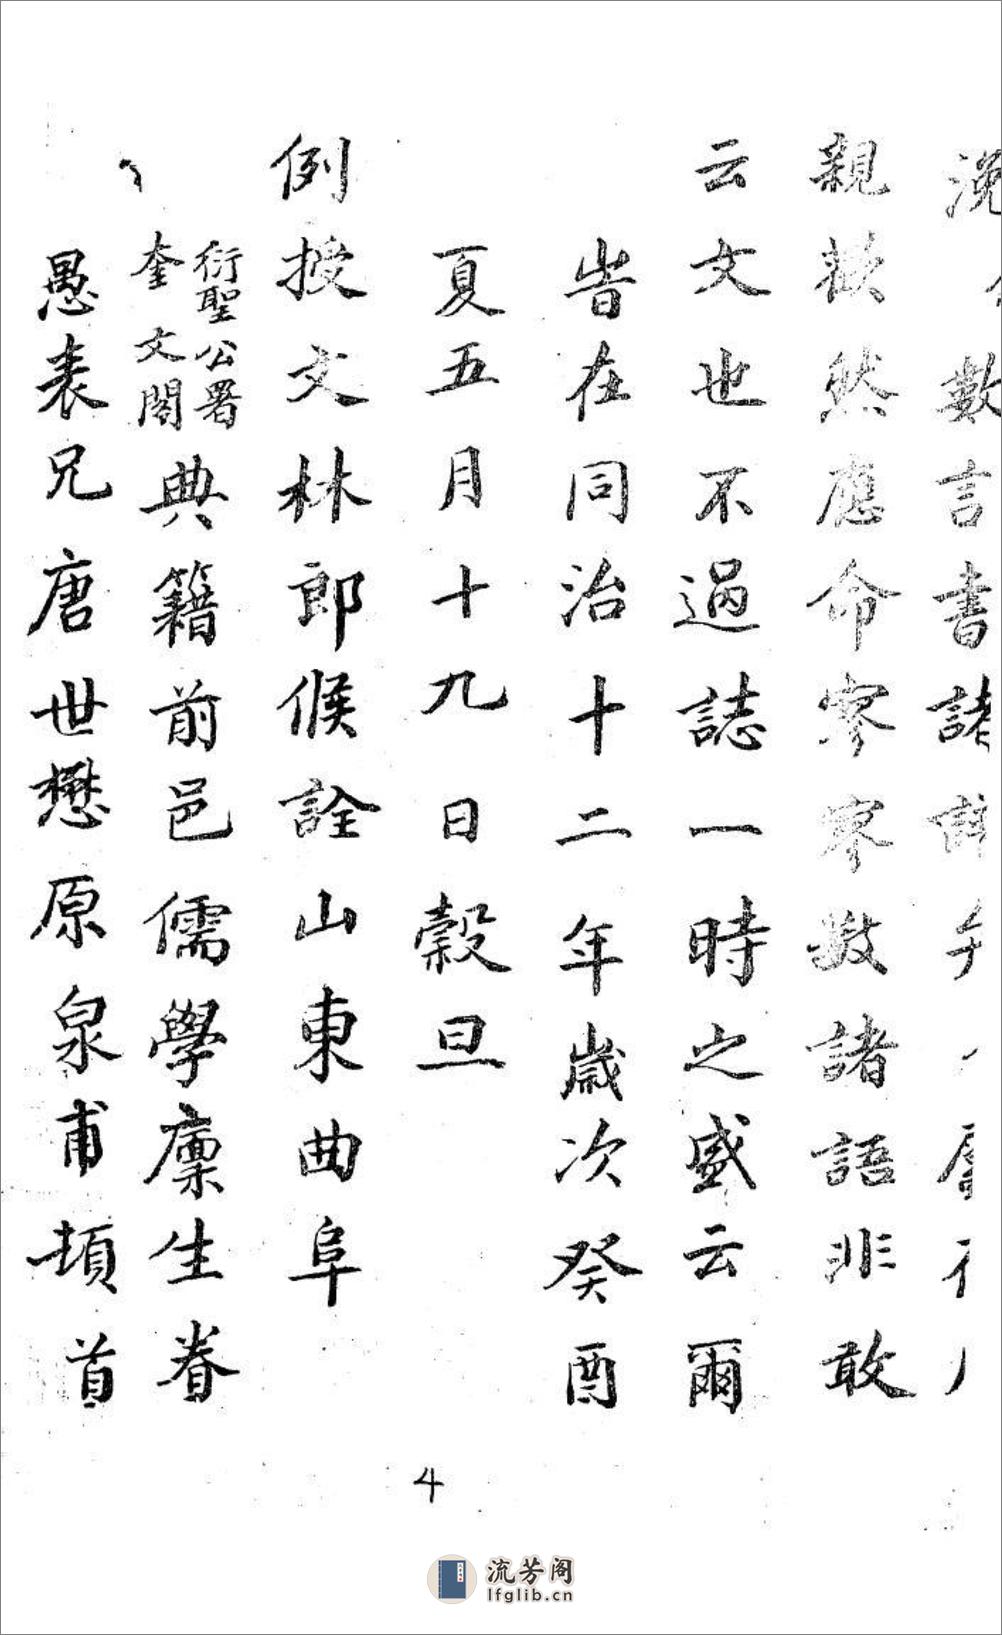 浼 數言書諸
親欵然應命寥寥數諸語非敢
云文也不過誌一時之盛云爾
旹在同治十二年歲次癸酉
夏五月十九日穀旦
例授文林郎候詮山東曲阜
衍聖公署
奎文閣
典籍前邑儒學廩生眷
愚表兄唐世懋原泉甫頓首
4
流芳阁
lfglib.cn